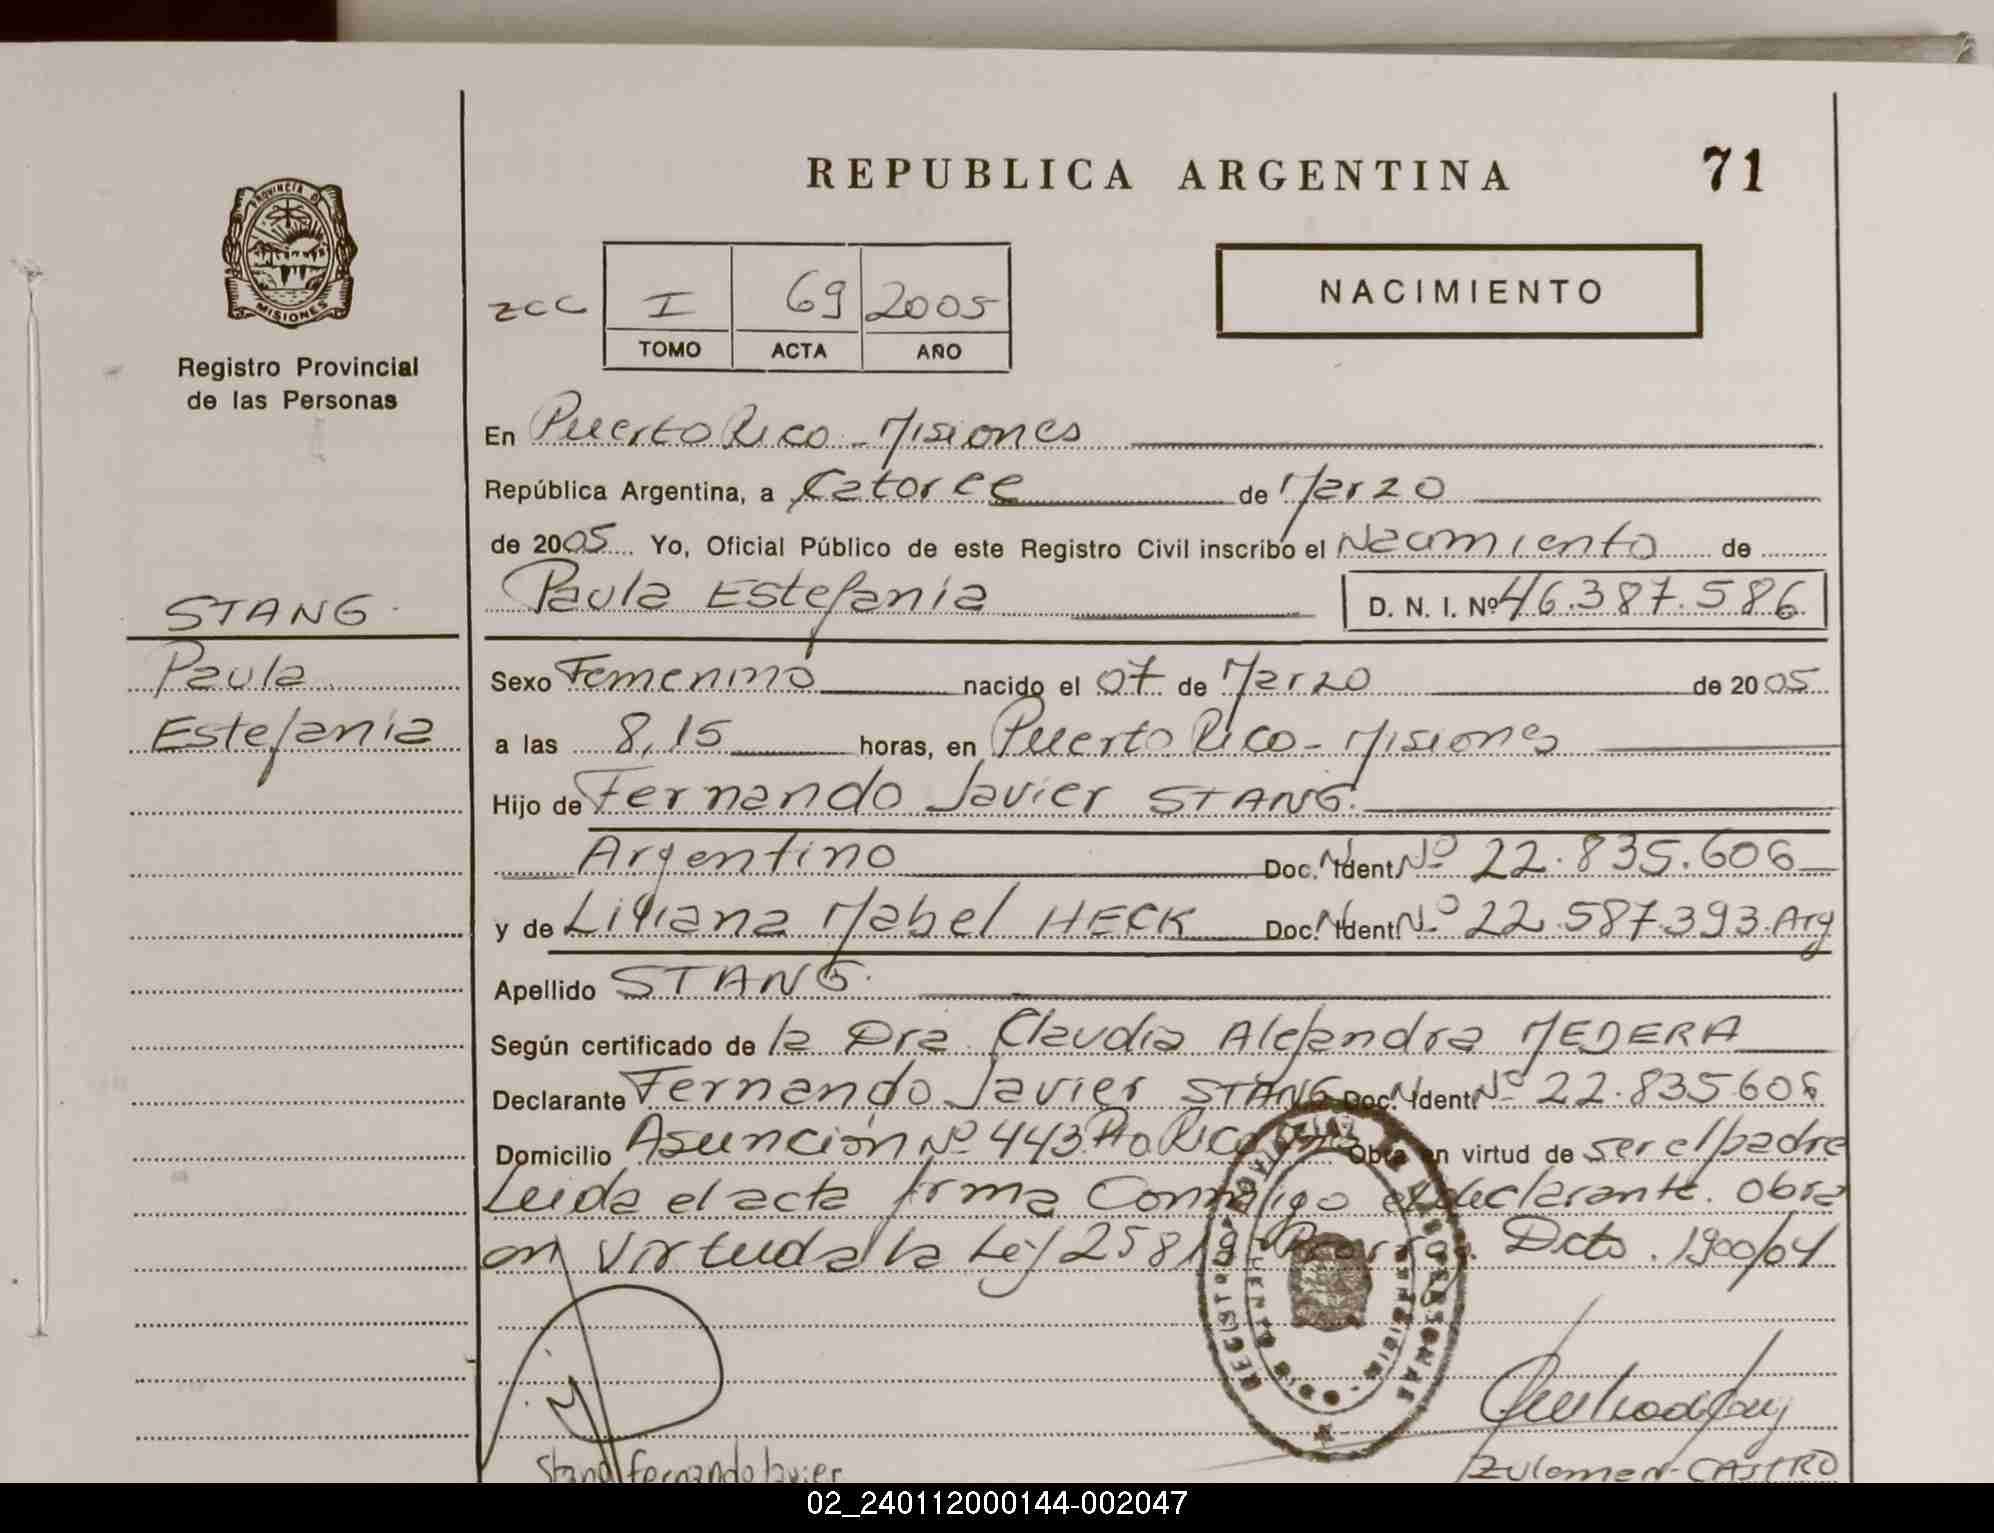 REPUBLICA ARGENTINA 71
PROVINCIA DE
MISIONES
Registro Provincial
de las Personas
I 69 2005
TOMO ACTA AÑO
NACIMIENTO
En Puerto Rico - Misiones
República Argentina, a Catorce de Marzo
de 2005 Yo, Oficial Público de este Registro Civil inscribo el Nacimiento de
Paula Estefania D. N. I. Nº 46.387.586
STANG
Paula
Estefania
Sexo Femenino nacido el 07 de Marzo de 2005
a las 8,15 horas, en Puerto Rico - Misiones
Hijo de Fernando Javier STANG
Argentino Doc. N. Ident. Nº 22.835.606
y de Liliana Mabel HECK Doc. N. Ident. Nº 22.587.393 Arg
Apellido STANG
Según certificado de la Dra Claudia Alejandra MEDERA
Declarante Fernando Javier STANG Doc. N. Ident. Nº 22.835.606
Domicilio Asunción Nº 443 Pto Rico Obra en virtud de ser el padre
Leida el acta firma Conmigo el declarante. Obra
en virtud a la Ley 25819 Dcto. 1900/04
REGISTRO PROVINCIAL DE LAS PERSONAS
Stang Fernando Javier
CASTRO
02_240112000144-002047